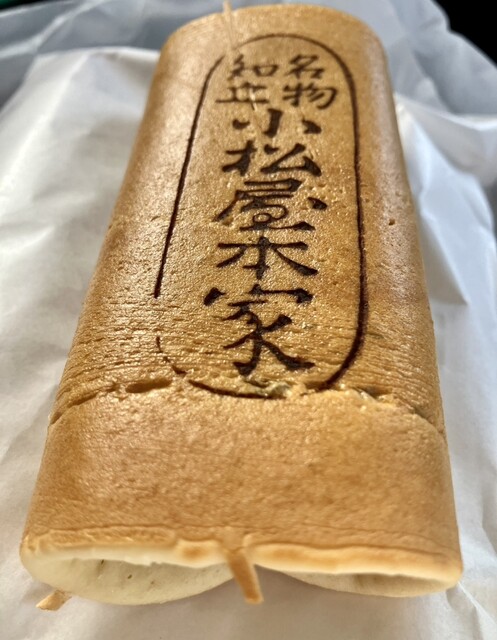 名物
知立
小松屋本家